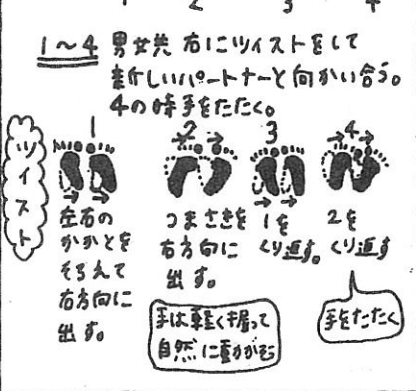 1 2 3 4
1〜4 男女共 右にツイストをして
新しいパートナーと向かい合う。
4の時手をたたく。
ツイスト
1
左右の
かかとを
そろえて
右方向に
出す。
2
つまさきを
右方向に
出す。
3
1を
くり返す。
4
2を
くり返す
手は軽く握って
自然に動かす
手をたたく